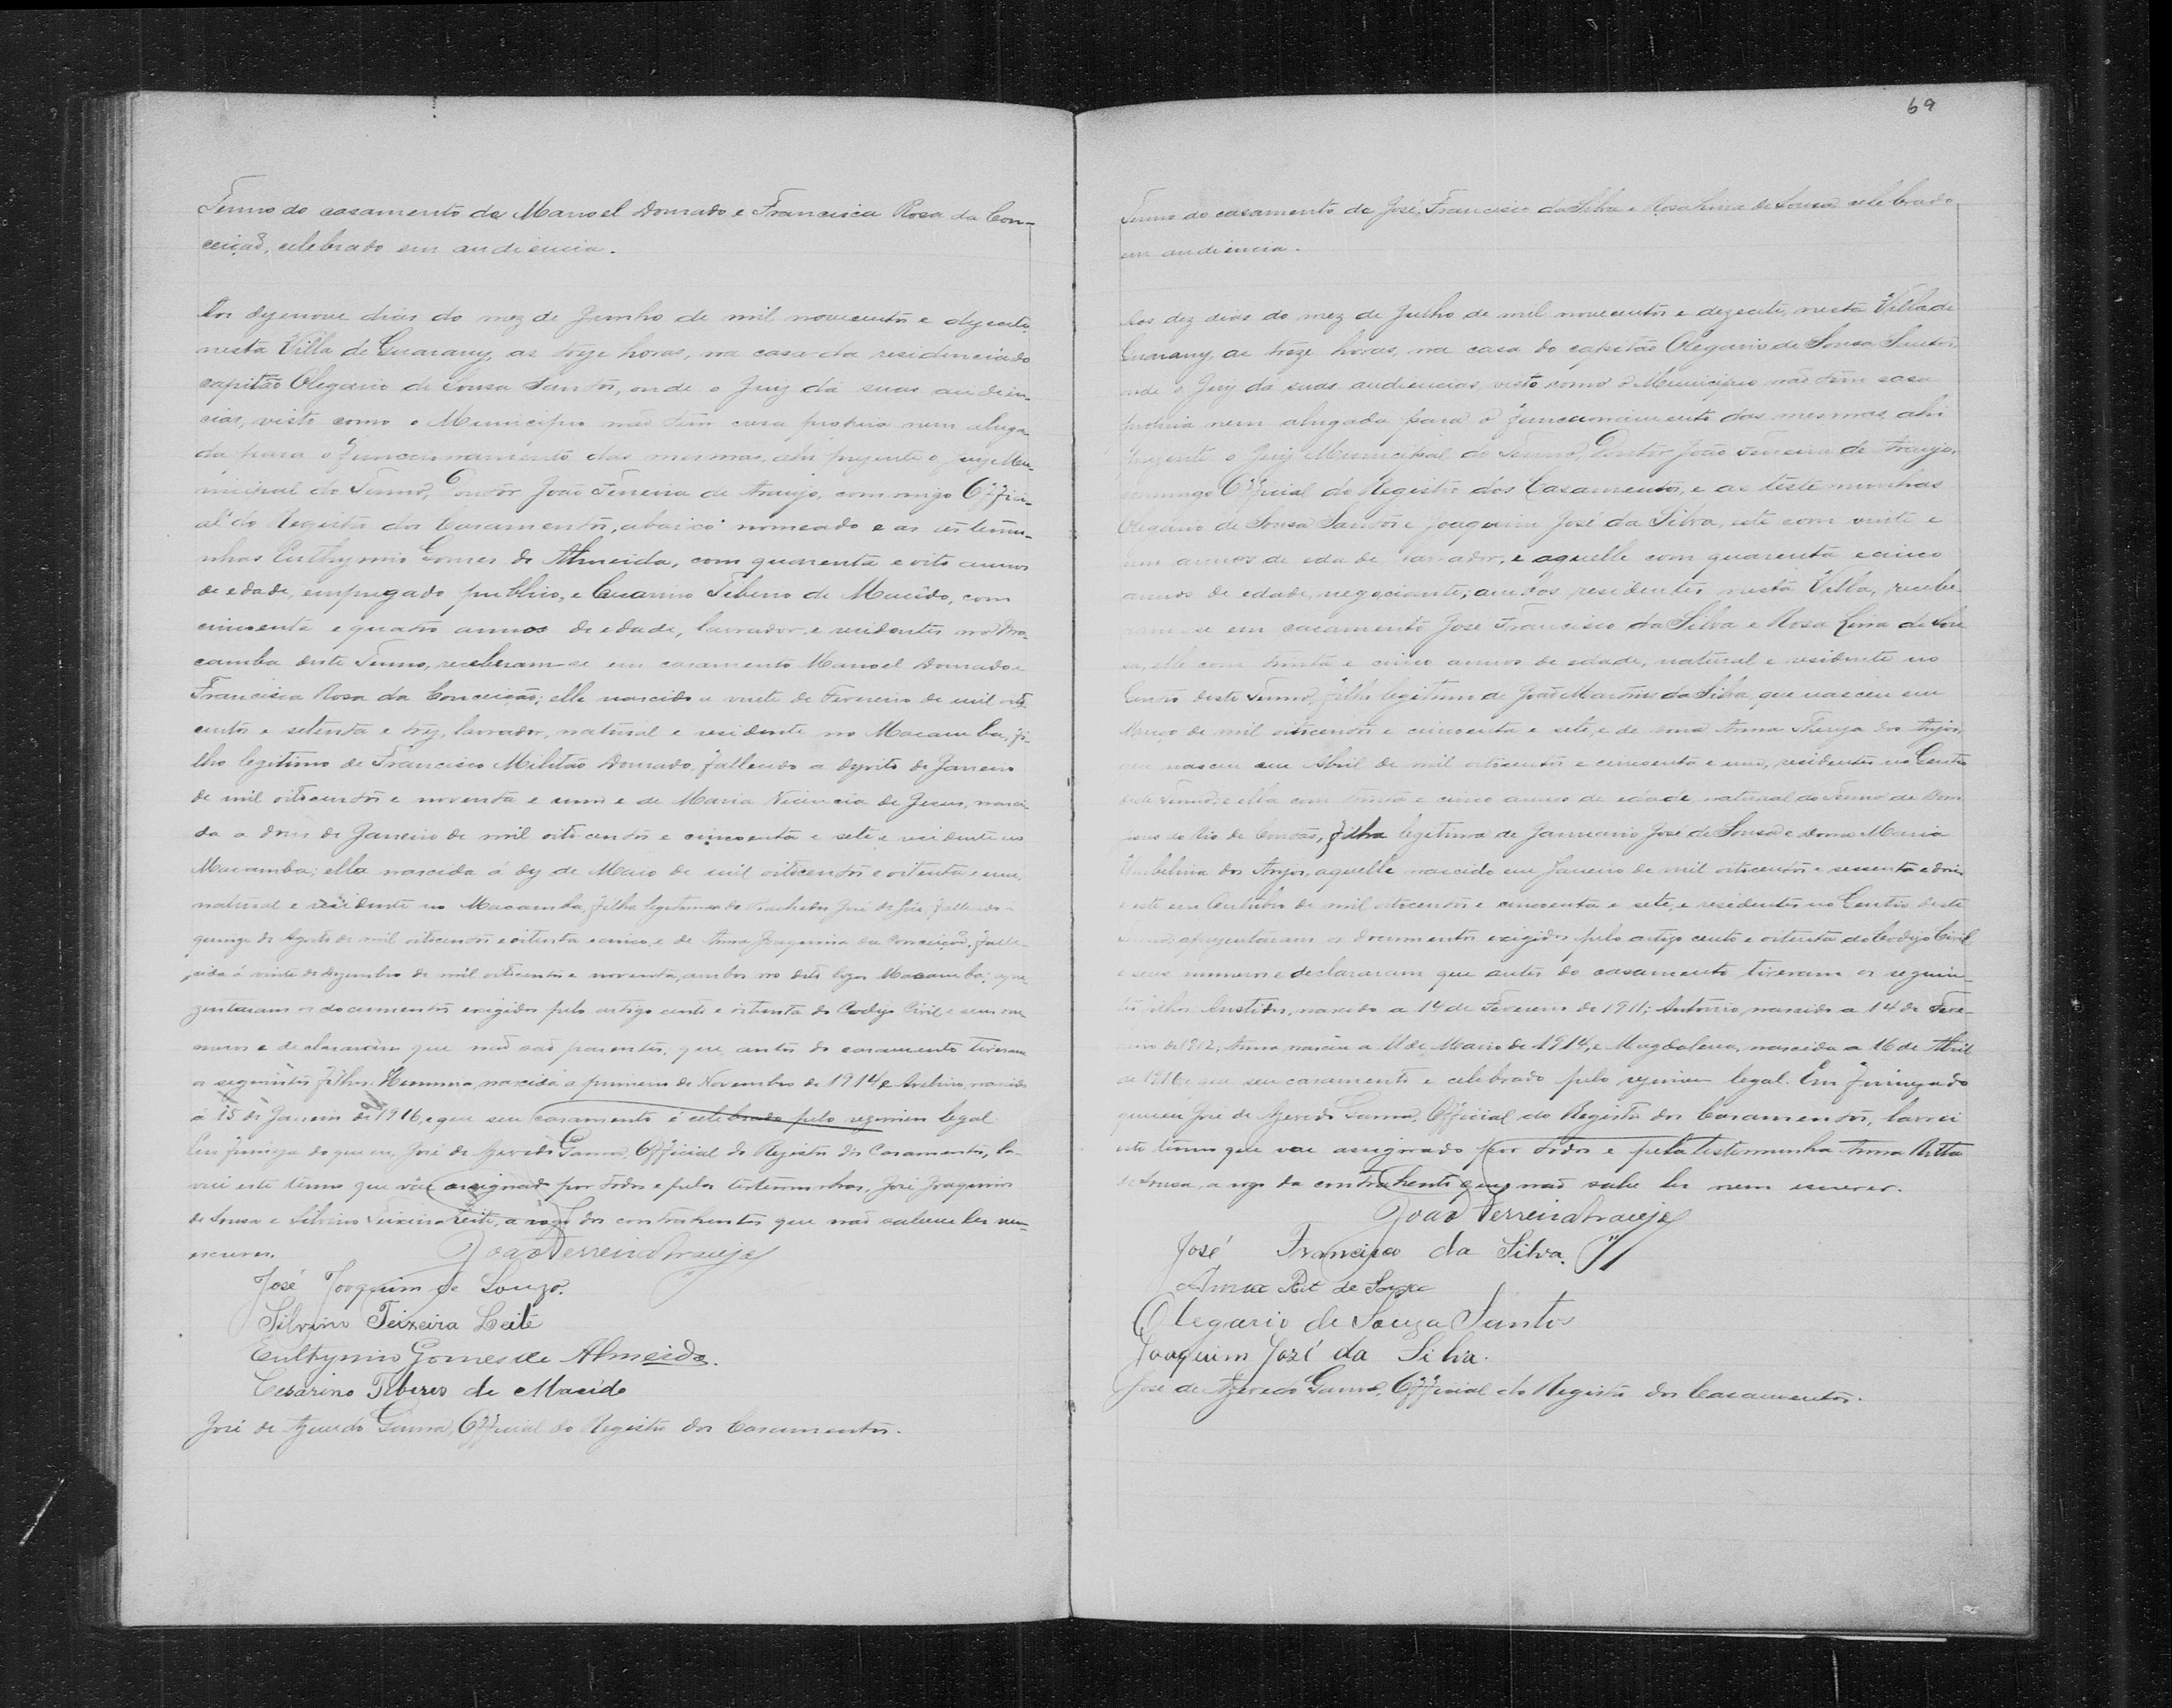 Termo do casamento de Manoel Dourado e Francisca Rosa da Con-
ceição, celebrado em audiencia.
Aos dezenove dias do mez de Junho de mil novecentos e dezesete,
nesta Villa de Guarany, as treze horas, na casa da residencia do
capitão Olegario de Sousa Santos, onde o Juiz dá suas audien-
cias, visto como o Municipio não tem casa propria nem aluga-
da para o funccionamento das mesmas, ahi prezente o Juiz Mu-
nicipal do Termo, Doutor João Ferreira de Araujo, commigo Offici-
al do Registro dos Casamentos, abaixo nomeado e as testemu-
nhas Euthymio Gomes de Almeida, com quarenta e oito annos
de edade, empregado publico, e Cesarino Tiberio de Macêdo, com
cincoenta e quatro annos de edade, lavrador, e residentes no Ma-
camba deste Termo, receberam-se em casamento Manoel Dourado e
Francisca Rosa da Conceição; elle nascido a vinte de Fevereiro de mil oito
centos e setenta e trez, lavrador, natural e residente no Macamba, fi-
lho legitimo de Francisco Militão Dourado, fallecido a dezoito de Janeiro
de mil oitocentos e noventa e um e de Maria Vicencia de Jesus, nasci-
da a dous de Janeiro de mil oito centos e cincoenta e sete e residente no
Macamba; ella nascida á dez de Maio de mil oitocentos e oitenta e um,
natural e residente no Macamba, filha legitima de José de , fallecido a
quinze de Agosto de mil oitocentos e oitenta e cinco, e de Anna Joaquina da Conceição, falle-
cida á vinte de Dezembro de mil oitocentos e noventa, ambos no dito lugar Macamba; apre-
zentaram os documentos exigidos pelo artigo cento e oitenta do Codigo Civil e seus nu-
meros e declararam que não são parentes, que antes do casamento tiveram
os seguintes filhos: , nascida a primeiro de Novembro de 1914, e Avelino, nascido
á 15 de Janeiro de 1916, e que seu casamento é celebrado pelo regimen legal.
Em firmeza do que eu, José de Azevedo Gama, Official do Registro dos Casamentos, la-
vrei este termo que vae assignado por todos e pelas testemunhas, José Joaquim
de Sousa e Silvino Teixeira Leite, a rogo dos contrahentes que não sabem ler nem
escrever.
João Ferreira Araujo
José Joaquim de Souza.
Silvino Teixeira Leite
Euthymio Gomes de Almeida.
Cesarino Tiberio de Macêdo
José de Azevedo Gama, Official do Registro dos Casamentos.
69
Termo do casamento de José Francisco da Silva e Rosa Lima de Sousa celebrado
em audiencia.
Aos dez dias do mez de Julho de mil novecentos e dezesete, nesta Villa de
Guarany, as treze horas, na casa do capitão Olegario de Sousa Santos,
onde o Juiz dá suas audiencias, visto como o Municipio não tem casa
propria nem alugada para o funccionamento das mesmas, ahi
prezente o Juiz Municipal do Termo, Doutor João Ferreira de Araujo,
commigo Official do Registro dos Casamentos, e as testemunhas
Olegario de Sousa Santos e Joaquim José da Silva, este com vinte e
um annos de edade lavrador, e aquelle com quarenta e cinco
annos de edade, negociante; ambos residentes nesta Villa, recebe-
ram-se em casamento José Francisco da Silva e Rosa Lima de Sou-
sa, elle com trinta e cinco annos de edade, natural e residente no
Centro deste Termo, filho legitimo de João Martins da Silva, que nasceu em
Março de mil oitocentos e cincoenta e sete, e de Dona Anna Thereza dos Anjos,
que nasceu em Abril de mil oitocentos e cincoenta e um, residentes no Centro
deste Termo; e ella com trinta e cinco annos de edade natural do Termo de Bom
Jesus do Rio de Contas, filha legitima de Januario José de Sousa e Dona Maria
Umbelina dos Anjos, aquelle nascido em Janeiro de mil oitocentos e sessenta e dois
e esta em Outubro de mil oitocentos e cincoenta e sete, e residentes no Centro deste
Termo; aprezentaram os documentos exigidos pelo artigo cento e oitenta do Codigo Civil
e seus numeros e declararam que antes do casamento tiveram os seguin-
tes filhos: Aristides, nascido a 14 de Fevereiro de 1911; Antonio, nascido a 14 de Feve-
reiro de 1912; Anna nascida a 11 de Março de 1914, e Magdalena, nascida a 16 de Abril
de 1916, e que seu casamento e celebrado pelo regimen legal. Em firmeza do
que eu José de Azevedo Gama, Official do Registro dos Casamentos, lavrei
este termo que vae assignado por todos e pela testemunha Anna Ritta
de Sousa, a rogo da contrahente que não sabe ler nem escrever.
João Ferreira Araujo
José Francisco da Silva.
Anna Rit de Souza
Olegario de Souza Santos
Joaquim José da Silva.
José de Azevedo Gama, Official do Registro dos Casamentos.